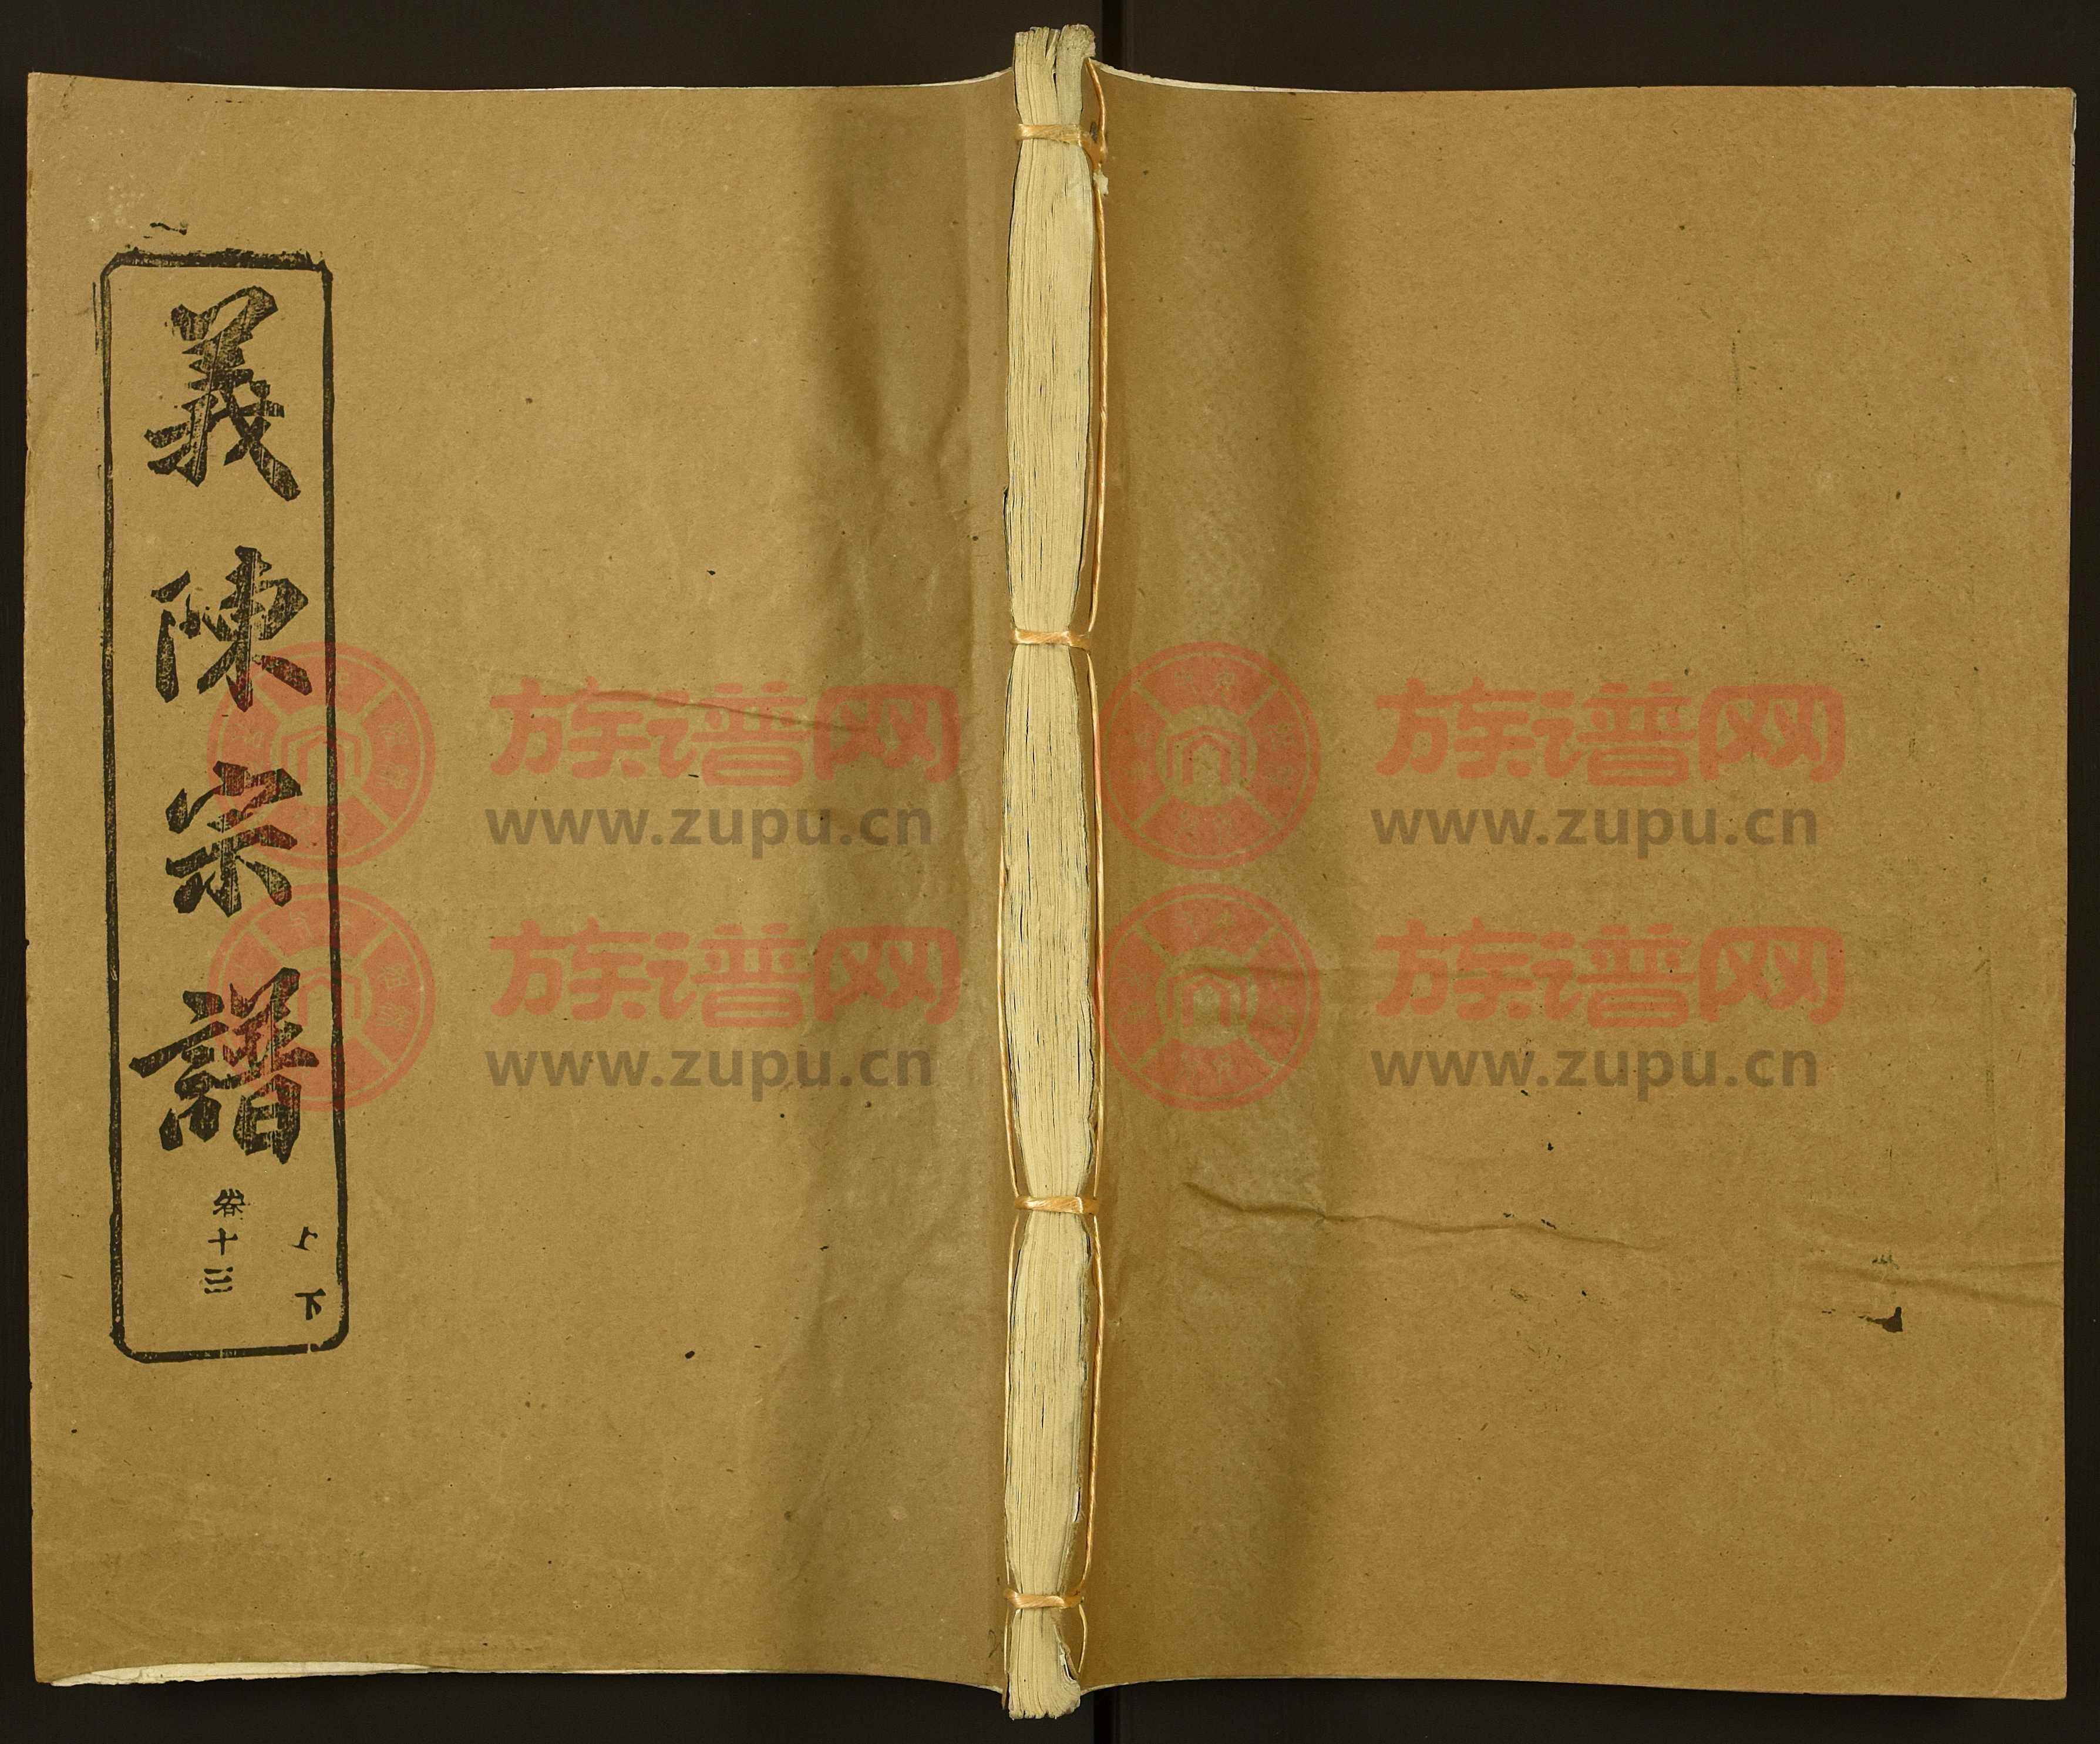 義陳宗譜
卷十三
上下
族谱网
www.zupu.cn
族谱网
www.zupu.cn
族谱网
www.zupu.cn
族谱网
www.zupu.cn